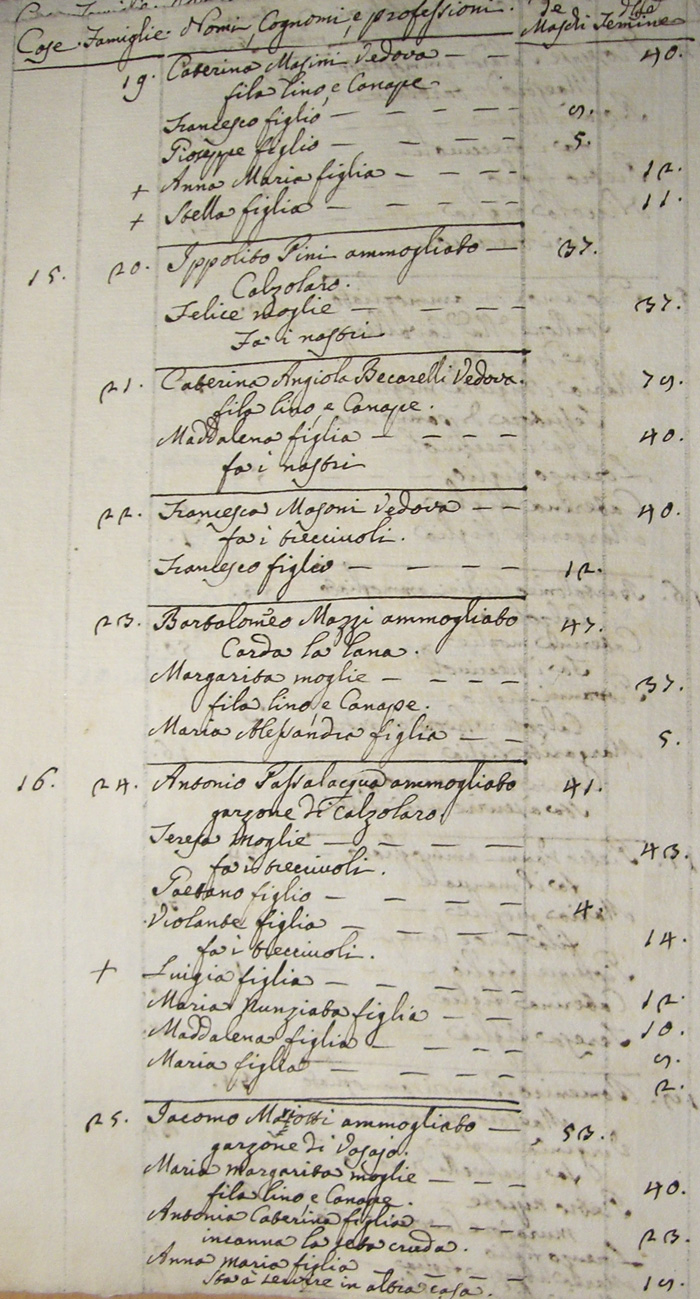 Case Famiglie Nomi, Cognomi, e professioni de Maschi delle Femine
19. Caterina Masini Vedova — — 40.
fila lino, e Canape
Francesco figlio — — — — 9.
Gioseppe figlio — — — — 5.
+ Anna Maria figlia — — — — 12.
+ Stella figlia — — — — 11.
15. 20. Ippolito Pini ammogliato — 37.
Calzolaro.
Felice moglie — — — — 37.
Fa i nastri
21. Caterina Angiola Becarelli Vedova. 79.
fila lino, e Canape.
Maddalena figlia — — — — 40.
fa i nastri
22. Francesca Masoni Vedova — — 40.
fa i treccivoli.
Francesco figlio — — — — 12.
23. Bartolomeo Mazzi ammogliato 47.
Carda la lana.
Margarita moglie — — — — 37.
fila lino, e Canape.
Maria Alessandra figlia — — 5.
16. 24. Antonio Passalacqua ammogliato 41.
garzone di Calzolaro.
Teresa moglie — — — — 43.
fa i treccivoli.
Gaetano figlio — — — — 4.
Violante figlia — — — — 14.
fa i treccivoli.
+ Luigia figlia — — — — 12.
Maria Nunziata figlia — — 10.
Maddalena figlia — — — — 9.
Maria figlia — — — — 2.
25. Iacomo ammogliato — 53.
garzone di Vasajo.
Maria Margarita moglie — — — 40.
fila lino, e Canape.
Antonia Caterina figlia — — — 23.
incanna la seta cruda.
Anna Maria figlia
Sta a servire in altra casa. — 19.